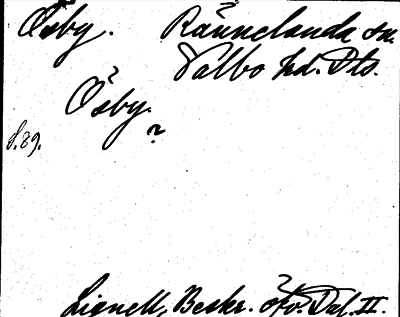 Ösby. Rännelanda sn.
Valbo hd. Dls.
Ösby.
?
s. 89.
Lignell, Beskr. öfv. Dal. II.